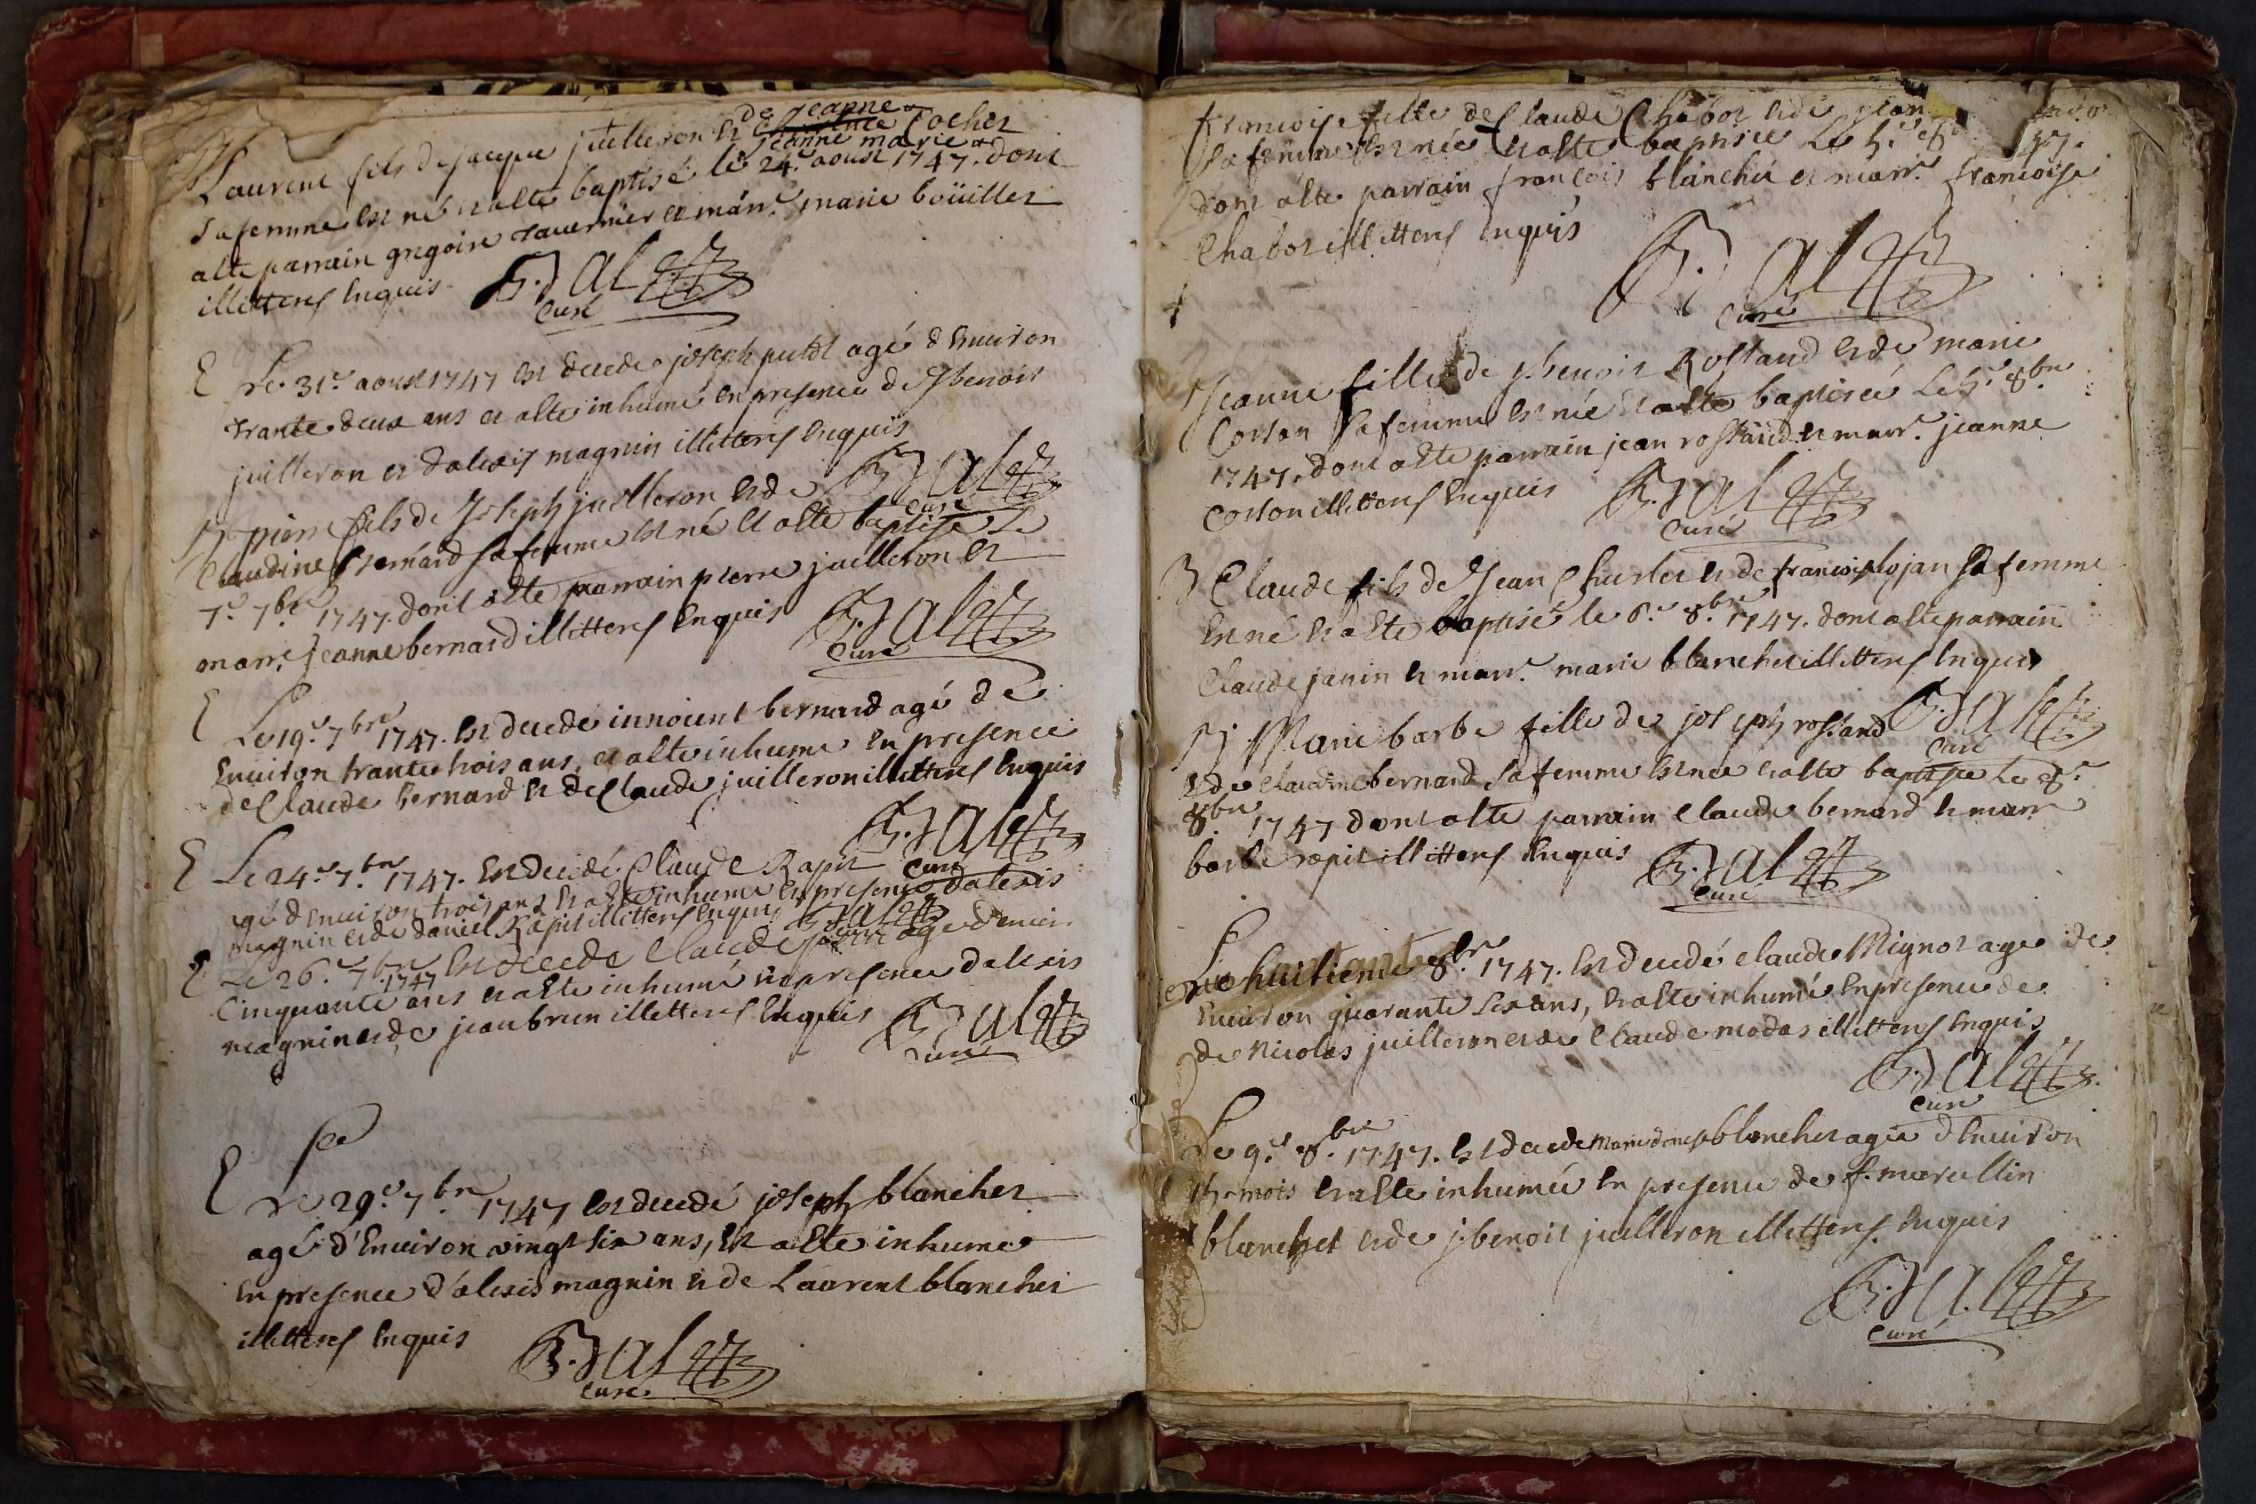 de Jeanne
Laurent fils de jacque juilleron et Cochet
jeanne marie
sa femme est né et a été baptisé le 24e aoust 1747. dont
a été parrain gregoire tavernier et marr.e marie boüillet
illitterés enquis
B. Dal
Curé
E Le 31e aoust 1747 est decedé joseph putot agé d'environ
trante deux ans et a été inhumé en presence de j benoit
juilleron et d'alexis magnin illitterés enquis
B. Dal
Curé
B pierre fils de Joseph juilleron et de
Claudine Bernard sa femme est né et a été baptisé le
7e 7bre 1747. dont a été parrain pierre juilleron et
marr.e jeanne bernard illitterés enquis
B. Dal
Curé
E Le 19e 7bre 1747. est decedé innocent bernard agé de
environ trante trois ans, et a été inhumé en presence
de Claude bernard et de Claude juilleron illitterés enquis
B. Dal
Curé
E Le 24e 7bre 1747. est decedé Claude Rapit
agé d'environ trois ans et a été inhumé en presence d'alexis
magnin et de daniel Rapit illitterés enquis B. Dal
E Le 26e 7bre 1747 est decedé Claude agé d'envir.
Cinquante ans et a été inhumé en presence d'alexis
magnin et de jean brun illitterés enquis
B. Dal
Curé
E Le 29e 7bre 1747 est decedé joseph blanchet
agé d'environ vingt six ans, et a été inhumé
en presence d'alexis magnin et de Laurent blanchet
illitterés enquis
B. Dal
Curé
francoise fille de Claude Chabot et de
sa femme est née et a été baptisée le 5e
dont a été parrain francois blanchet et marr.e francoise
Chabot illitterés enquis
B. Dal
Curé
Jeanne fille de j benoit Rostand et de marie
Corton sa femme est née et a été baptisée le 5e 8bre
1747. dont a été parrain jean rostand et marr.e jeanne
Corton illitterés enquis
B. Dal
Curé
B Claude fils de Jean Charlet et de francoise lojan sa femme
est né et a été baptisé le 6e 8bre 1747. dont a été parrain
Claude janin et marr.e marie blanchet illitterés enquis
B. Dal
Curé
B Marie barbe fille de joseph rostand
et de claudine bernard sa femme est née et a été baptisée le 8e
8bre 1747 dont a été parrain claude bernard et marr.
barbe rapit illitterés enquis
B. Dal
Curé
Le huitieme 8bre 1747. est decedé claude Mignot agé de
environ quarante six ans, et a été inhumé en presence de
de Nicolas juilleron et de Claude modas illitterés enquis
B. Dal
Curé
Le 9e 8bre 1747. est decedé marie blanchet agée d'environ
mois et a été inhumée en presence de f. marcellin
blanchet et de j. benoit juilleron illitterés enquis
B. Dal
Curé